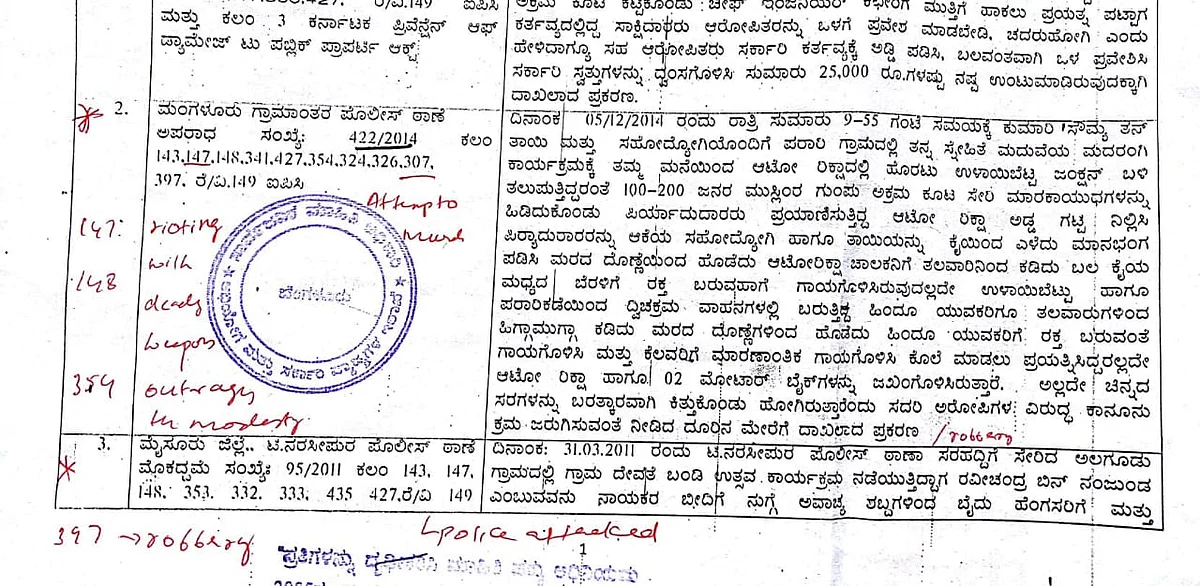 ಮತ್ತು ಕಲಂ 3 ಕರ್ನಾಟಕ ಪ್ರಿವೆನ್ಷೆನ್ ಆಫ್
ಡ್ಯಾಮೇಜ್ ಟು ಪಬ್ಲಿಕ್ ಪ್ರಾಪರ್ಟಿ ಆಕ್ಟ್
ಅಕ್ರಮ ಕೂಟ ಕಟ್ಟಿಕೊಂಡು ಚೀಫ್ ಇಂಜಿನಿಯರ್ ಕಛೇರಿಗೆ ಮುತ್ತಿಗೆ ಹಾಕಲು ಪ್ರಯತ್ನ ಪಟ್ಟಾಗ
ಕರ್ತವ್ಯದಲ್ಲಿದ್ದ ಸಾಕ್ಷಿದಾರರು ಆರೋಪಿತರನ್ನು ಒಳಗೆ ಪ್ರವೇಶ ಮಾಡಬೇಡಿ, ಚದರುಹೋಗಿ ಎಂದು
ಹೇಳಿದಾಗ್ಯೂ ಸಹ ಆರೋಪಿತರು ಸರ್ಕಾರಿ ಕರ್ತವ್ಯಕ್ಕೆ ಅಡ್ಡಿ ಪಡಿಸಿ, ಬಲವಂತವಾಗಿ ಒಳ ಪ್ರವೇಶಿಸಿ
ಸರ್ಕಾರಿ ಸ್ವತ್ತುಗಳನ್ನು ಧ್ವಂಸಗೊಳಿಸಿ ಸುಮಾರು 25,000 ರೂ.ಗಳಷ್ಟು ನಷ್ಟ ಉಂಟುಮಾಡಿರುವುದಕ್ಕಾಗಿ
ದಾಖಲಾದ ಪ್ರಕರಣ.
2. ಮಂಗಳೂರು ಗ್ರಾಮಾಂತರ ಪೊಲೀಸ್ ಠಾಣೆ
ಅಪರಾಧ ಸಂಖ್ಯೆ: 422/2014 ಕಲಂ
143,147,148,341,427,354,324,326,307,
397, ರೆ/ವಿ.149 ಐಪಿಸಿ
Attempt to
147: rioting
148 with
deadly
weapons
354 outrages
the modesty
ಬೆಂಗಳೂರು
ದಿನಾಂಕ 05/12/2014 ರಂದು ರಾತ್ರಿ ಸುಮಾರು 9-55 ಗಂಟೆ ಸಮಯಕ್ಕೆ ಕುಮಾರಿ ಸೌಮ್ಯ ತನ್
ತಾಯಿ ಮತ್ತು ಸಹೋದ್ಯೋಗಿಯೊಂದಿಗೆ ಪರಾರಿ ಗ್ರಾಮದಲ್ಲಿ ತನ್ನ ಸ್ನೇಹಿತೆ ಮದುವೆಯ ಮದರಂಗಿ
ಕಾರ್ಯಕ್ರಮಕ್ಕೆ ತಮ್ಮ ಮನೆಯಿಂದ ಆಟೋ ರಿಕ್ಷಾದಲ್ಲಿ ಹೊರಟು ಉಳಾಯಿಬೆಟ್ಟ ಜಂಕ್ಷನ್ ಬಳಿ
ತಲುಪುತ್ತಿದ್ದರಂತೆ 100-200 ಜನರ ಮುಸ್ಲಿಂರ ಗುಂಪು ಅಕ್ರಮ ಕೂಟ ಸೇರಿ ಮಾರಕಾಯುಧಗಳನ್ನು
ಹಿಡಿದುಕೊಂಡು ಪಿರ್ಯಾದುದಾರರು ಪ್ರಯಾಣಿಸುತ್ತಿದ್ದ ಆಟೋ ರಿಕ್ಷಾ ಅಡ್ಡ ಗಟ್ಟಿ ನಿಲ್ಲಿಸಿ
ಪಿರ್‍ಯಾದುರಾರರನ್ನು ಆಕೆಯ ಸಹೋದ್ಯೋಗಿ ಹಾಗೂ ತಾಯಿಯನ್ನು ಕೈಯಿಂದ ಎಳೆದು ಮಾನಭಂಗ
ಪಡಿಸಿ ಮರದ ದೊಣ್ಣೆಯಿಂದ ಹೊಡೆದು ಆಟೋರಿಕ್ಷಾ ಚಾಲಕನಿಗೆ ತಲವಾರಿನಿಂದ ಕಡಿದು ಬಲ ಕೈಯ
ಮಧ್ಯದ ಬೆರಳಿಗೆ ರಕ್ತ ಬರುವಹಾಗೆ ಗಾಯಗೊಳಿಸಿರುವುದಲ್ಲದೇ ಉಳಾಯಿಬೆಟ್ಟು ಹಾಗೂ
ಪರಾರಿಕಡೆಯಿಂದ ದ್ವಿಚಕ್ರಮ ವಾಹನಗಳಲ್ಲಿ ಬರುತ್ತಿದ್ದ ಹಿಂದೂ ಯುವಕರಿಗೂ ತಲವಾರುಗಳಿಂದ
ಹಿಗ್ಗಾಮುಗ್ಗಾ ಕಡಿದು ಮರದ ದೊಣ್ಣೆಗಳಿಂದ ಹೊಡೆದು ಹಿಂದೂ ಯುವಕರಿಗೆ ರಕ್ತ ಬರುವಂತೆ
ಗಾಯಗೊಳಿಸಿ ಮತ್ತು ಕೆಲವರಿಗೆ ಮಾರಣಾಂತಿಕ ಗಾಯಗೊಳಿಸಿ ಕೊಲೆ ಮಾಡಲು ಪ್ರಯತ್ನಿಸಿದ್ದರಲ್ಲದೇ
ಆಟೋ ರಿಕ್ಷಾ ಹಾಗೂ 02 ಮೋಟಾರ್ ಬೈಕ್‌ಗಳನ್ನು ಜಖಂಗೊಳಿಸಿರುತ್ತಾರೆ. ಅಲ್ಲದೇ ಚಿನ್ನದ
ಸರಗಳನ್ನು ಬರತ್ಕಾರವಾಗಿ ಕಿತ್ತುಕೊಂಡು ಹೋಗಿರುತ್ತಾರೆಂದು ಸದರಿ ಅರೋಪಿಗಳ ವಿರುದ್ಧ ಕಾನೂನು
ಕ್ರಮ ಜರುಗಿಸುವಂತೆ ನೀಡಿದ ದೂರಿನ ಮೇರೆಗೆ ದಾಖಲಾದ ಪ್ರಕರಣ /robbery
3. ಮೈಸೂರು ಜಿಲ್ಲೆ., ಟಿ.ನರಸೀಪುರ ಪೊಲೀಸ್ ಠಾಣೆ
ಮೊಕದ್ದಮೆ ಸಂಖ್ಯೆ: 95/2011 ಕಲಂ 143, 147,
148, 353, 332, 333, 435 427,ರೆ/ವಿ 149
ದಿನಾಂಕ: 31.03.2011 ರಂದು ಟಿ.ನರಸೀಪುರ ಪೊಲೀಸ್ ಠಾಣಾ ಸರಹದ್ದಿಗೆ ಸೇರಿದ ಅಲಗೂಡು
ಗ್ರಾಮದಲ್ಲಿ ಗ್ರಾಮ ದೇವತೆ ಬಂಡಿ ಉತ್ಸವ ಕಾರ್ಯಕ್ರಮ ನಡೆಯುತ್ತಿದ್ದಾಗ ರವೀಚಂದ್ರ ಬಿನ್ ನಂಜುಂಡ
ಎಂಬುವವನು ನಾಯಕರ ಬೀದಿಗೆ ನುಗ್ಗೆ ಅವಾಚ್ಯ ಶಬ್ದಗಳಿಂದ ಬೈದು ಹೆಂಗಸರಿಗೆ ಮತ್ತು
397 → robbery
police attacked
1